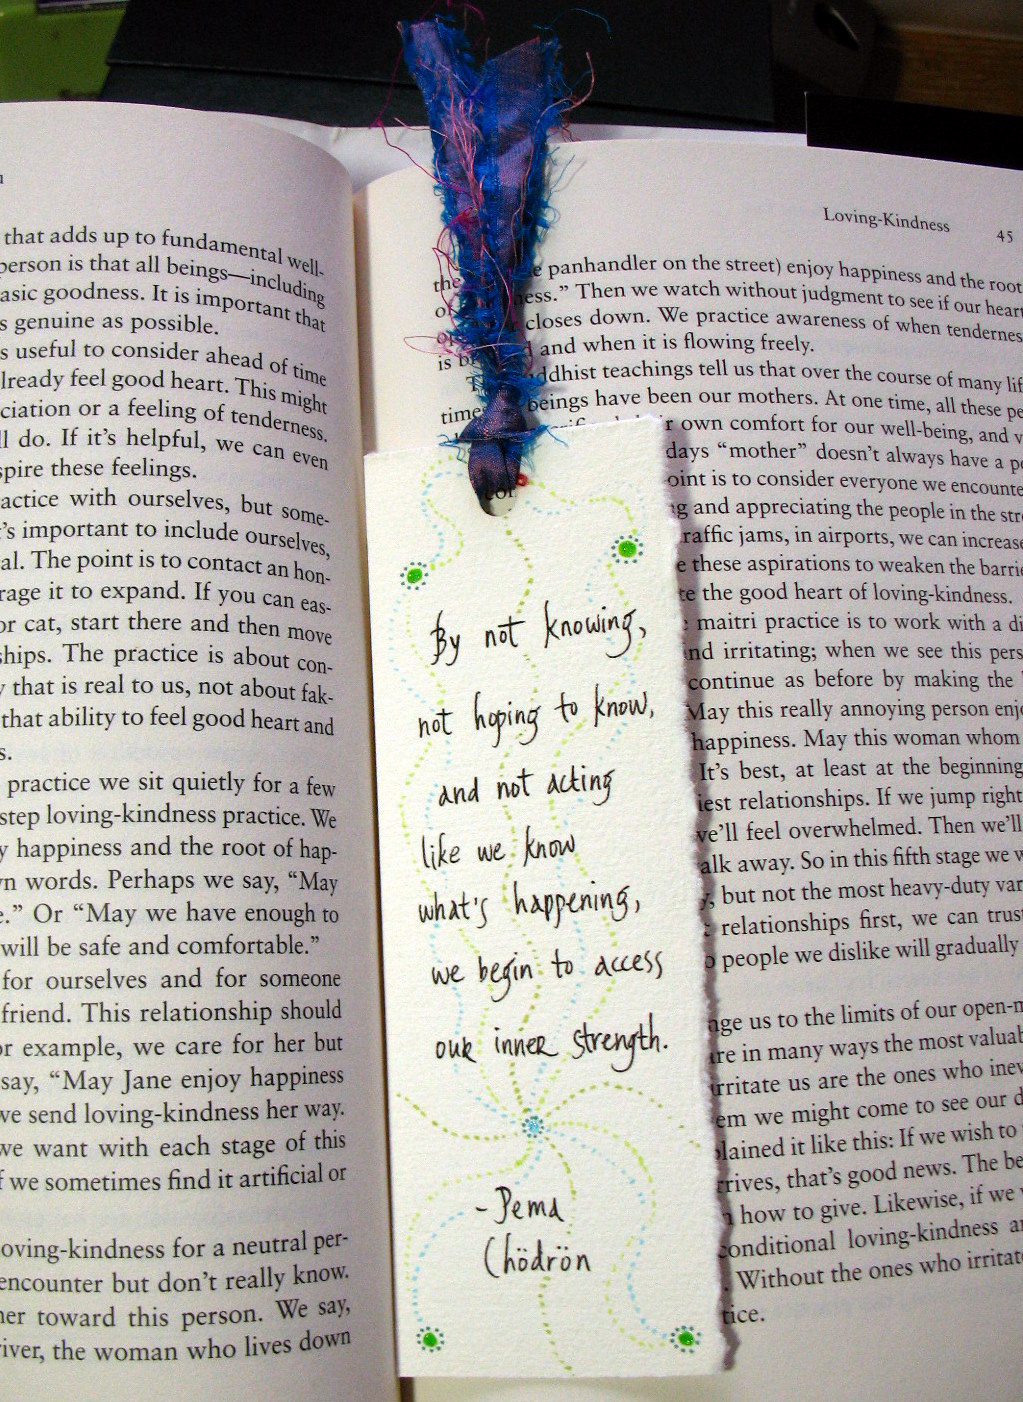 that adds up to fundamental well-
person is that all beings—including
basic goodness. It is important that
s genuine as possible.
s useful to consider ahead of time
already feel good heart. This might
ciation or a feeling of tenderness.
ll do. If it's helpful, we can even
spire these feelings.
actice with ourselves, but some-
's important to include ourselves,
al. The point is to contact an hon-
rage it to expand. If you can eas-
or cat, start there and then move
ships. The practice is about con-
y that is real to us, not about fak-
that ability to feel good heart and
s.
practice we sit quietly for a few
step loving-kindness practice. We
y happiness and the root of hap-
n words. Perhaps we say, “May
e.” Or “May we have enough to
will be safe and comfortable.”
for ourselves and for someone
friend. This relationship should
or example, we care for her but
say, “May Jane enjoy happiness
we send loving-kindness her way.
we want with each stage of this
f we sometimes find it artificial or
oving-kindness for a neutral per-
encounter but don't really know.
her toward this person. We say,
river, the woman who lives down
Loving-Kindness 45
the panhandler on the street) enjoy happiness and the root
ness.” Then we watch without judgment to see if our heart
closes down. We practice awareness of when tendernes
is and when it is flowing freely.
ddhist teachings tell us that over the course of many lif
times beings have been our mothers. At one time, all these pe
r own comfort for our well-being, and v
days “mother” doesn't always have a po
oint is to consider everyone we encounte
g and appreciating the people in the stre
raffic jams, in airports, we can increase
e these aspirations to weaken the barrie
te the good heart of loving-kindness.
maitri practice is to work with a di
nd irritating; when we see this pers
continue as before by making the
May this really annoying person enjo
happiness. May this woman whom
It's best, at least at the beginning
iest relationships. If we jump right
we'll feel overwhelmed. Then we'll
alk away. So in this fifth stage we w
y, but not the most heavy-duty var
t relationships first, we can trust
o people we dislike will gradually
nge us to the limits of our open-m
are in many ways the most valuab
irritate us are the ones who inev
em we might come to see our d
plained it like this: If we wish to
rrives, that's good news. The be
n how to give. Likewise, if we
conditional loving-kindness an
. Without the ones who irritate
tice.
By not knowing,
not hoping to know,
and not acting
like we know
what's happening,
we begin to access
our inner strength.
- Pema
Chödrön